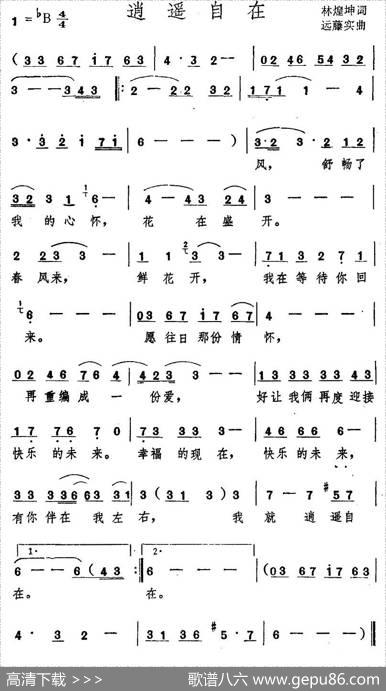 逍遥自在
1 = ♭B 4/4
林煌坤词
远藤实曲
(33 67 i7 63 | 4·3 2— | 02 46 54 32 |
3——343 ‖: 2—22 32 | 171 1—4 |
3·3 2 i 7i | 6———) | 3·2 2 12 |
风， 舒畅了
32 3 1 6· | 4—43 24 | 3——— |
我的心怀， 花 在盛 开。
2 23 3— | 1 1 3 3— | 71 3 2 7 1 |
春风来， 鲜花开， 我在等待你回
6——— | 03 67 i7 67 | 6——— |
来。 愿往日那份情 怀，
02 46 76 4 | 423 3— | 13 33 33 43 |
再重编成一 份爱， 好让我俩再度迎接
17 76 7 0 | 73 33 3— | 46 66 6— |
快乐的未来。 幸福的现在， 快乐的未来，
33 336 63 31 | 3(31 3)3 | 7—7 #57 |
有你伴在我左 右， 我 就 逍遥自
1· 2·
6——6(43 :‖ 6——— | (03 67 i7 63 |
在。 在。
4·3 2— | 31 36 #5·7 | 6———) |
高清下载 >>> 歌谱八六 www.gepu86.com